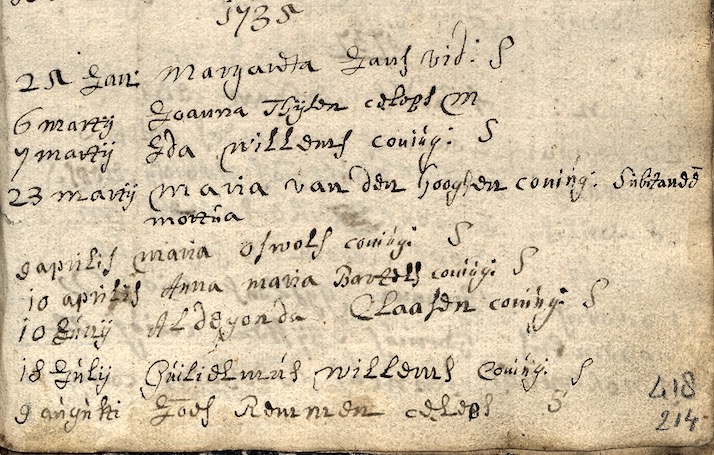 1735
25 Jan: Margareta Jans vid: S
6 martij Joanna Thijsen celebs M
7 martij Ida Willems coniug: S
23 martij Maria van den Hooghen coniug: Subitanee
mortua
9 aprilis Maria Oswols coniug: S
10 aprilis Anna maria Bartels coniug: S
10 Junij Aldegonda Claasen coniug: S
18 Julij Guilielmus Willems Coniug: S
9 augusti Joes Remmen celebs S
418
214